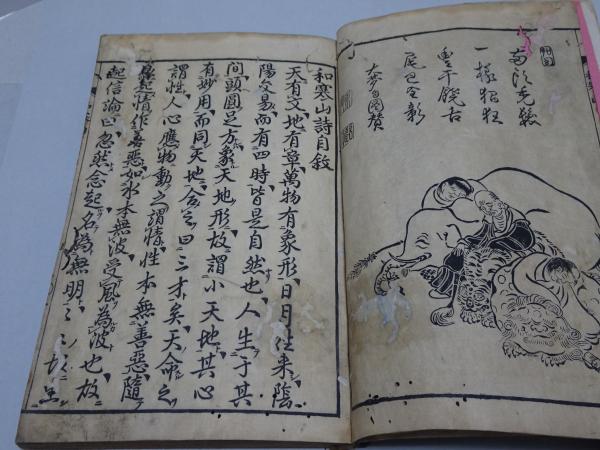 一樣猖狂
豊干饒舌
尾巴全彰
和寒山詩自敘
天有文地有章萬物有象形日月往来陰
陽交易而有四時皆是自然也人生于其
間頭圓足方象天地形故謂小天地其心
有妙用而同天地合之曰三才矣天命之
謂性人心應物動之謂情性本無善惡隨
縁起情作善惡如水本無波受風為波也故
起信論曰忽然念起名為無明